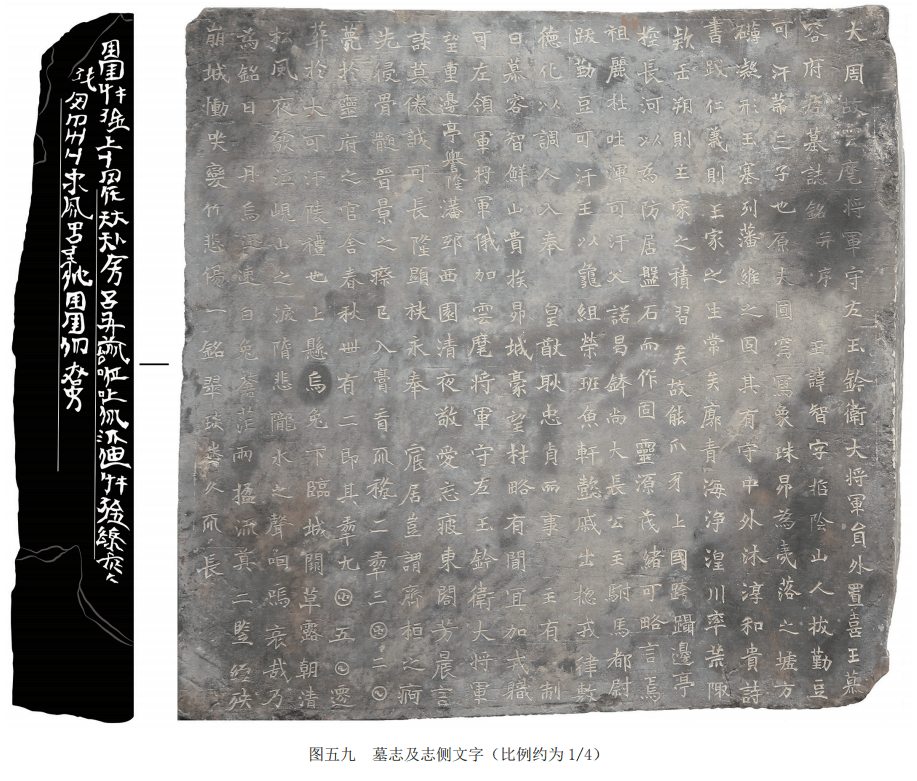 大周故雲麾將軍守左玉鈐衛大將軍員外置喜王慕
容府君墓誌銘并序 王諱智字哲陰山人拔勤豆
可汗第三子也原夫圓穹寫象珠昴為夷落之墟方
礴凝形玉塞列藩維之固其有守中外沐淳和貴詩
書踐仁義則王家之生常矣廓青海淨湟川率荒陬
款𠙺朔則主家之積習矣故能爪牙上國跨躡邊亭
控長河以為防居盤石而作固靈源茂緒可略言焉
祖麗杜吐渾可汗父諾曷鉢尚大長公主駙馬都尉
跋勤豆可汗王以龜組榮班魚軒懿戚出揔戎律敷
德化以調人入奉 皇猷耿忠貞而事 主有 制
曰慕容智鮮山貴族昴城豪望材略有聞宜加戎職
可左領軍將軍俄加雲麾將軍守左玉鈐衛大將軍
望重邊亭譽隆藩邸西園清夜敬愛忘疲東閣芳晨言
談莫倦誠可長隆顯秩永奉 宸居豈謂齊桓之痾
先侵骨髓晉景之瘵已入膏肓𠀑𥠢二𠡦三囝二𡆠
薨於靈府之官舍春秋卌有二即其𠡦九囝五𡆠遷
葬於大可汗陵禮也上懸烏兔下臨城闕草露朝清
松風夜發泣峴山之淚隋悲隴水之聲咽嗚哀哉乃
為銘曰 丹烏迅速白兔蒼茫兩楹流奠二鑒經殃
崩城慟哭變竹悲傷一銘翠琰埊久𠀑長
图五九 墓志及志侧文字（比例约为 1/4）